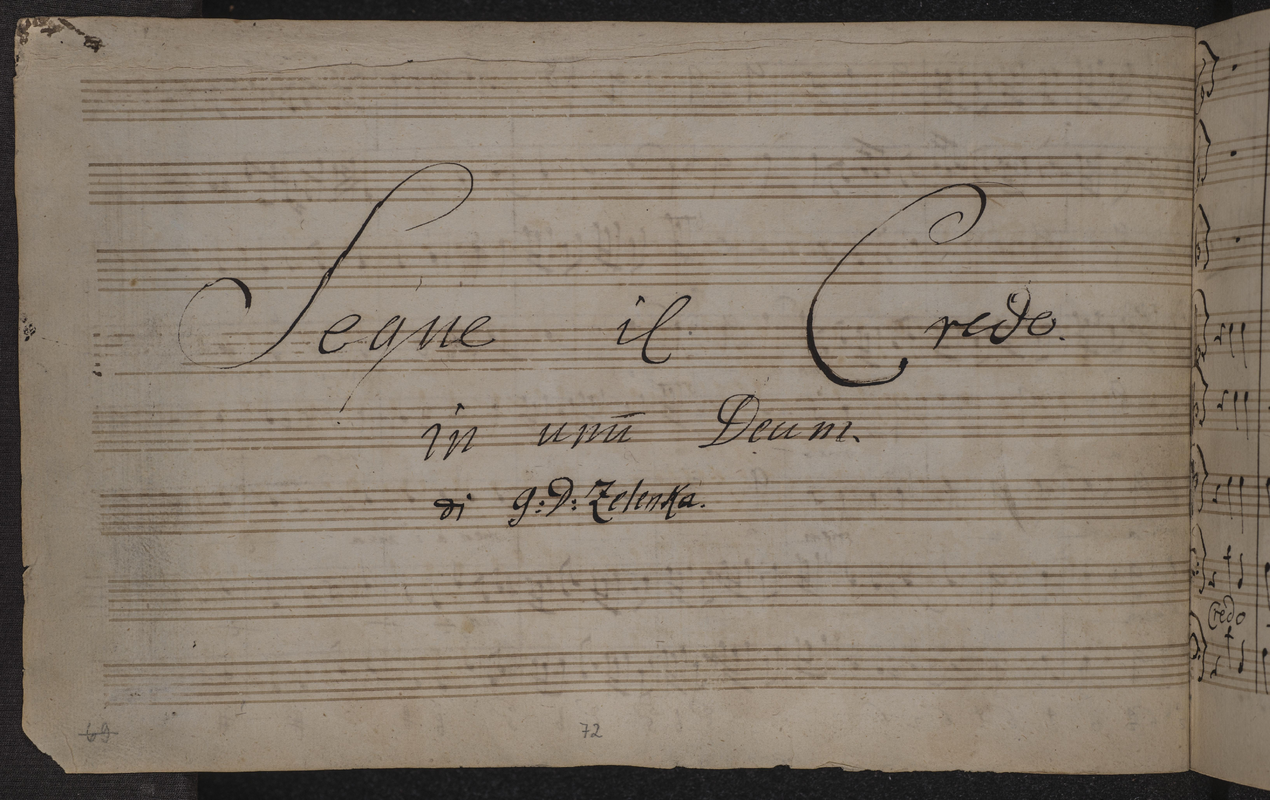 Seque il Credo.
in unū Deum.
di G: D: Zelenka.
Credo
69
72